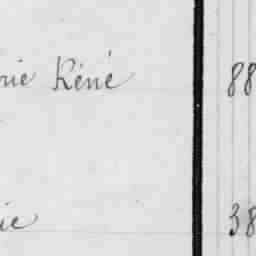 rie Réné 88
ie 38